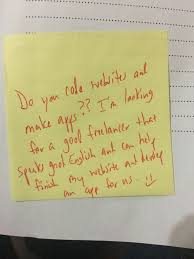 Do you code websites and
make apps?? I'm looking
for a good freelancer that
speaks good English and can help
finish my website and develop
an app for us.. :)